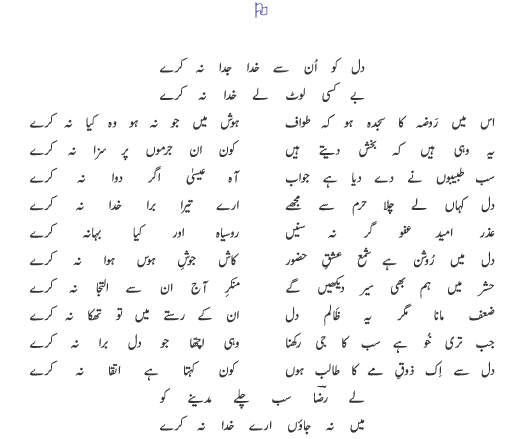 دل کو اُن سے خدا جدا نہ کرے
بے کسی لوٹ لے خدا نہ کرے
اس میں رَوضہ کا سجدہ ہو کہ طواف ہوش میں جو نہ ہو وہ کیا نہ کرے
یہ وہی ہیں کہ بخش دیتے ہیں کون ان جرموں پر سزا نہ کرے
سب طبیبوں نے دے دیا ہے جواب آہ عیسیٰ اگر دوا نہ کرے
دل کہاں لے چلا حرم سے مجھے ارے تیرا برا خدا نہ کرے
عذر امید عفو گر نہ سنیں روسیاہ اور کیا بہانہ کرے
دل میں رُوشن ہے شمع عشقِ حضور کاش جوشِ ہوس ہوا نہ کرے
حشر میں ہم بھی سیر دیکھیں گے منکرِ آج ان سے التجا نہ کرے
ضعف مانا مگر یہ ظالم دل ان کے رستے میں تو تھکا نہ کرے
جب تری خُو ہے سب کا جی رکھنا وہی اچھا جو دل برا نہ کرے
دل سے اِک ذوقِ مے کا طالب ہوں کون کہتا ہے اتقا نہ کرے
لے رضاؔ سب چلے مدینے کو
میں نہ جاؤں ارے خدا نہ کرے